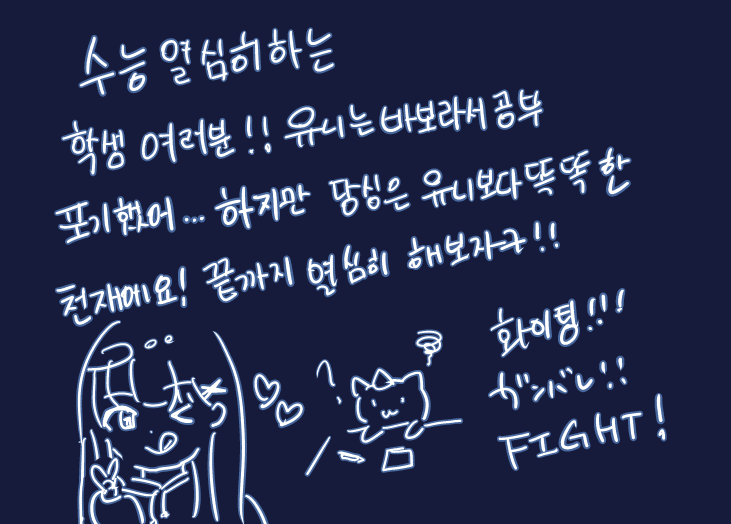 수능 열심히하는
학생 여러분!! 유니는바보라서공부
포기했어... 하지만 당싱은 유니보다똑똑한
천재에요! 끝까지 열심히 해보자구!!
화이팅!!!
ガンバレ!!
FIGHT!
?